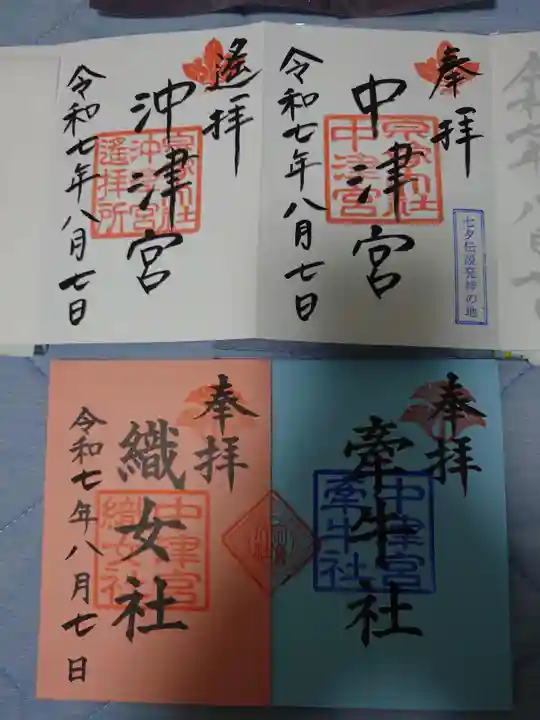 奉拝
中津宮
宗像大社
中津宮
七夕伝説発祥の地
令和七年八月七日
遙拝
沖津宮
宗像大社
沖津宮
遙拝所
令和七年八月七日
奉拝
牽牛社
中津宮
牽牛社
奉拝
織女社
中津宮
織女社
令和七年八月七日